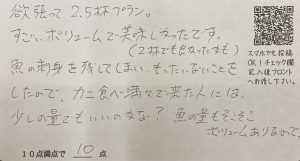 欲張って2.5杯プラン。
すごいボリュームで美味しかったです。
(2杯でも良かったかも)
魚の刺身を残してしまい、もったいないことを
したので、カニ食べ満々で来た人には、
少しの量でもいいのかな? 魚の量もそこそこ
ボリュームあるので。
10点満点で 10 点
スマホでも投稿
OK!チェック欄
記入後フロント
へお渡し下さい。